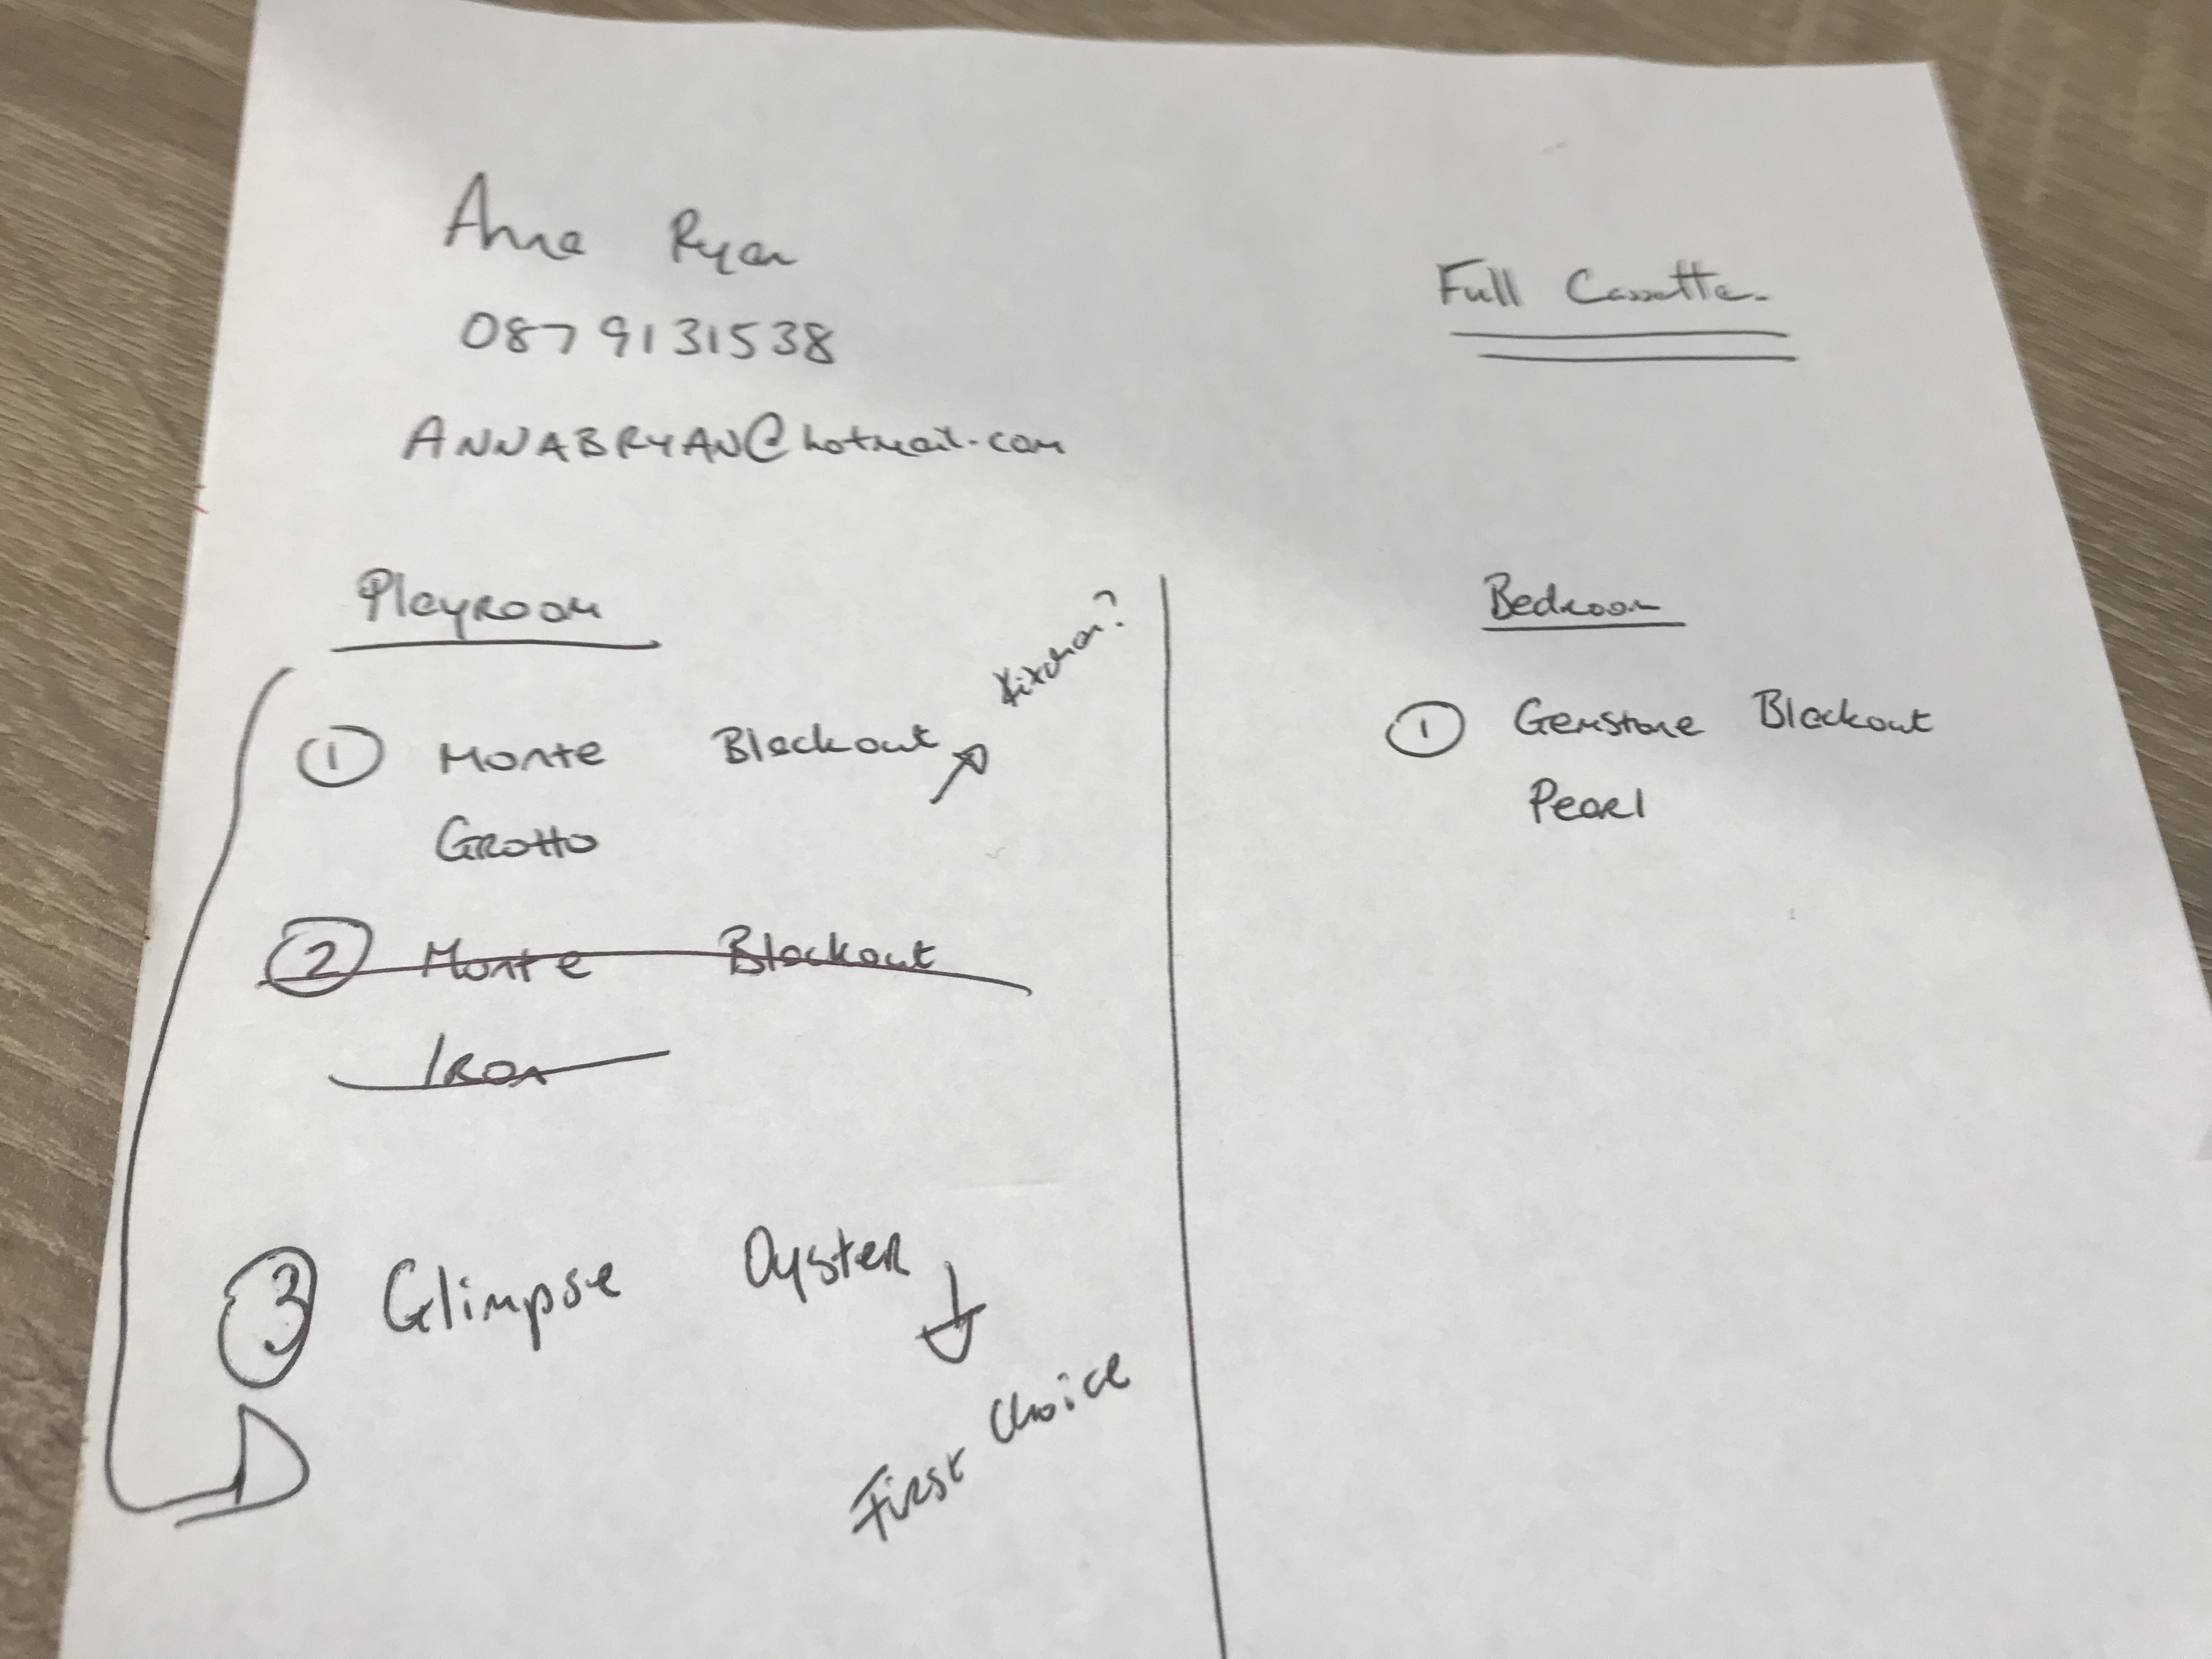 Anna Ryan
0879131538
ANNABRYAN@hotmail.com
Full Cassette.
Playroom
Kitchen?
① Monte Blackout
Grotto
② Monte Blackout
Iron
③ Glimpse Oyster
First Choice
Bedroom
① Gemstone Blackout
Pearl